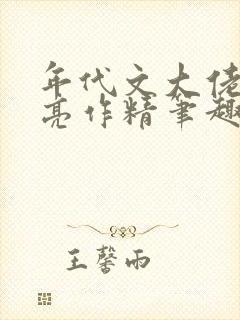 年代文大佬
亮作精笔趣
王馨雨